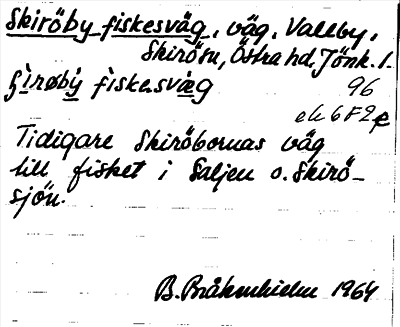 Skiröby fiskesväg, väg, Vallby,
Skirö sn, Östra hd, Jönk. l.
96
ek 6 F 2 e
Tidigare Skiröbornas väg
till fisket i Saljen o. Skirö-
sjön.
B. Bråkenhielm 1964